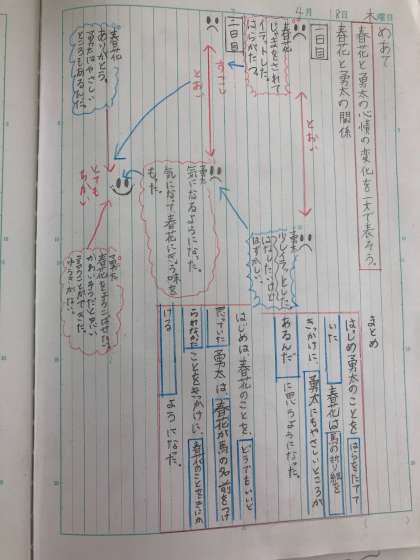 4月18日 木曜日
めあて
春花と勇太の心情の変化を一文で表そう。
春花と勇太の関係
一日目
春花
じゃまをされて
イライラした。
はらがたつ。
とおい
勇太
はずかしい。
二日目
とおい
勇太
気になるようになった。
気になって春花にきょう味を
もった。
春花
ありがとう。
勇太はやさしい
ところもあるんだ。
とても
ちかい
勇太
まとめ
はじめ勇太のことをはらをたてて
いた春花は馬の折り紙を
きっかけに、勇太にもやさしいところが
あるんだと思うようになった。
はじめは春花のことをどうでもいいと
思っていた勇太は春花が馬の名前をつけ
ことをきっかけに、春花のことを気にか
けるようになった。